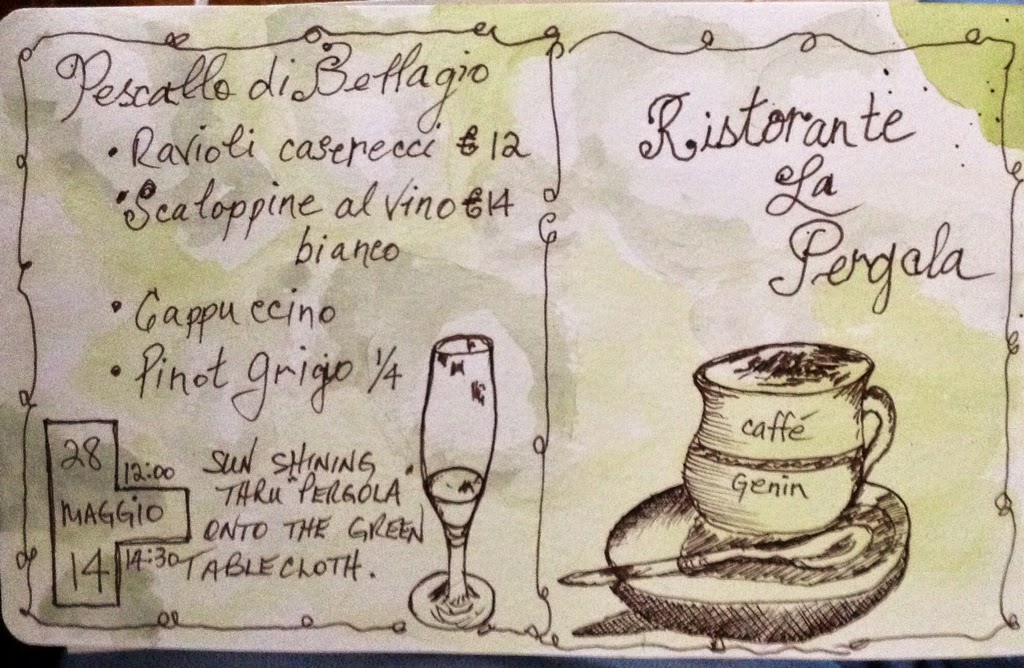 Pescallo di Bellagio
• Ravioli caserecci € 12
• Scaloppine al vino €14
bianco
• Cappuccino
• Pinot grigio ¼
28
MAGGIO
14
12:00
14:30
SUN SHINING
THRU PERGOLA
ONTO THE GREEN
TABLECLOTH.
Ristorante
La
Pergola
caffé
Genin